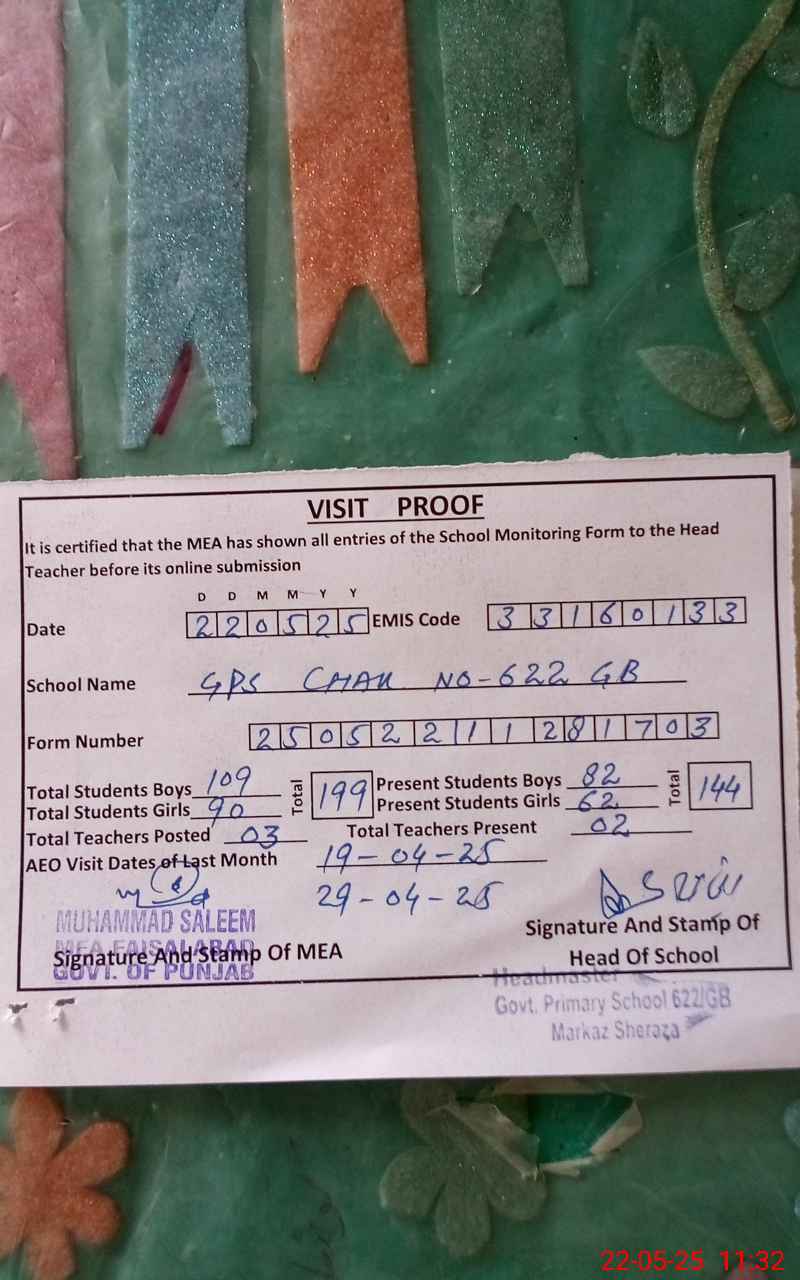 VISIT PROOF
It is certified that the MEA has shown all entries of the School Monitoring Form to the Head
Teacher before its online submission
D D M M Y Y
Date 220525 EMIS Code 33160133
School Name GPS CHAK NO-622 GB
Form Number 250522111281703
Total Students Boys 109 Total 199 Present Students Boys 82 Total 144
Total Students Girls 90 Present Students Girls 62
Total Teachers Posted 03 Total Teachers Present 02
AEO Visit Dates of Last Month 19-04-25
29-04-25
MUHAMMAD SALEEM
MEA FAISALABAD
GOVT. OF PUNJAB
Signature And Stamp Of MEA
Signature And Stamp Of
Head Of School
Headmaster
Govt. Primary School 622/GB
Markaz Sheraza
22-05-25 11:32